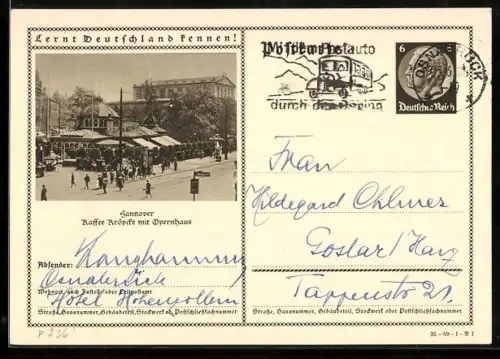 Lernt Deutschland kennen!
Hannover
Kaffee Kröpcke mit Opernhaus
Absender:
Osnabrück
Wohnort, auch Zustell- oder Leitpostamt
Hotel Hohenzollern
Straße, Hausnummer, Gebäudeteil, Stockwerk od. Postschließfachnummer
Postkarte
Mit dem Postauto
durch den
6
6
Deutsches Reich
OSNABRÜCK
Frau
Hildegard
Goslar/Harz
Tappenstr 21.
Straße, Hausnummer, Gebäudeteil, Stockwerk oder Postschließfachnummer